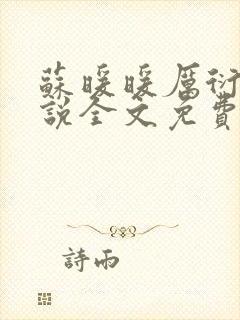 蘇暖暖厲衍
說全文免費
詩雨